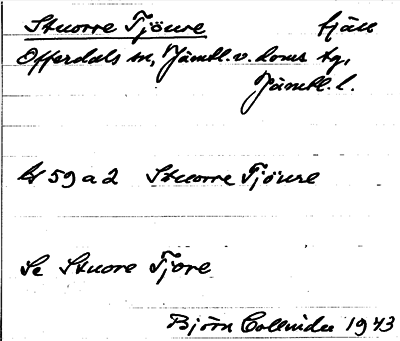 Stuorre Tjöure fjäll
Offerdals sn, Jämtl. v. doms tg,
Jämtl. l.
bl 59 a 2 Stuorre Tjöure
Se Stuore Tjore
Björn Collinder 1973